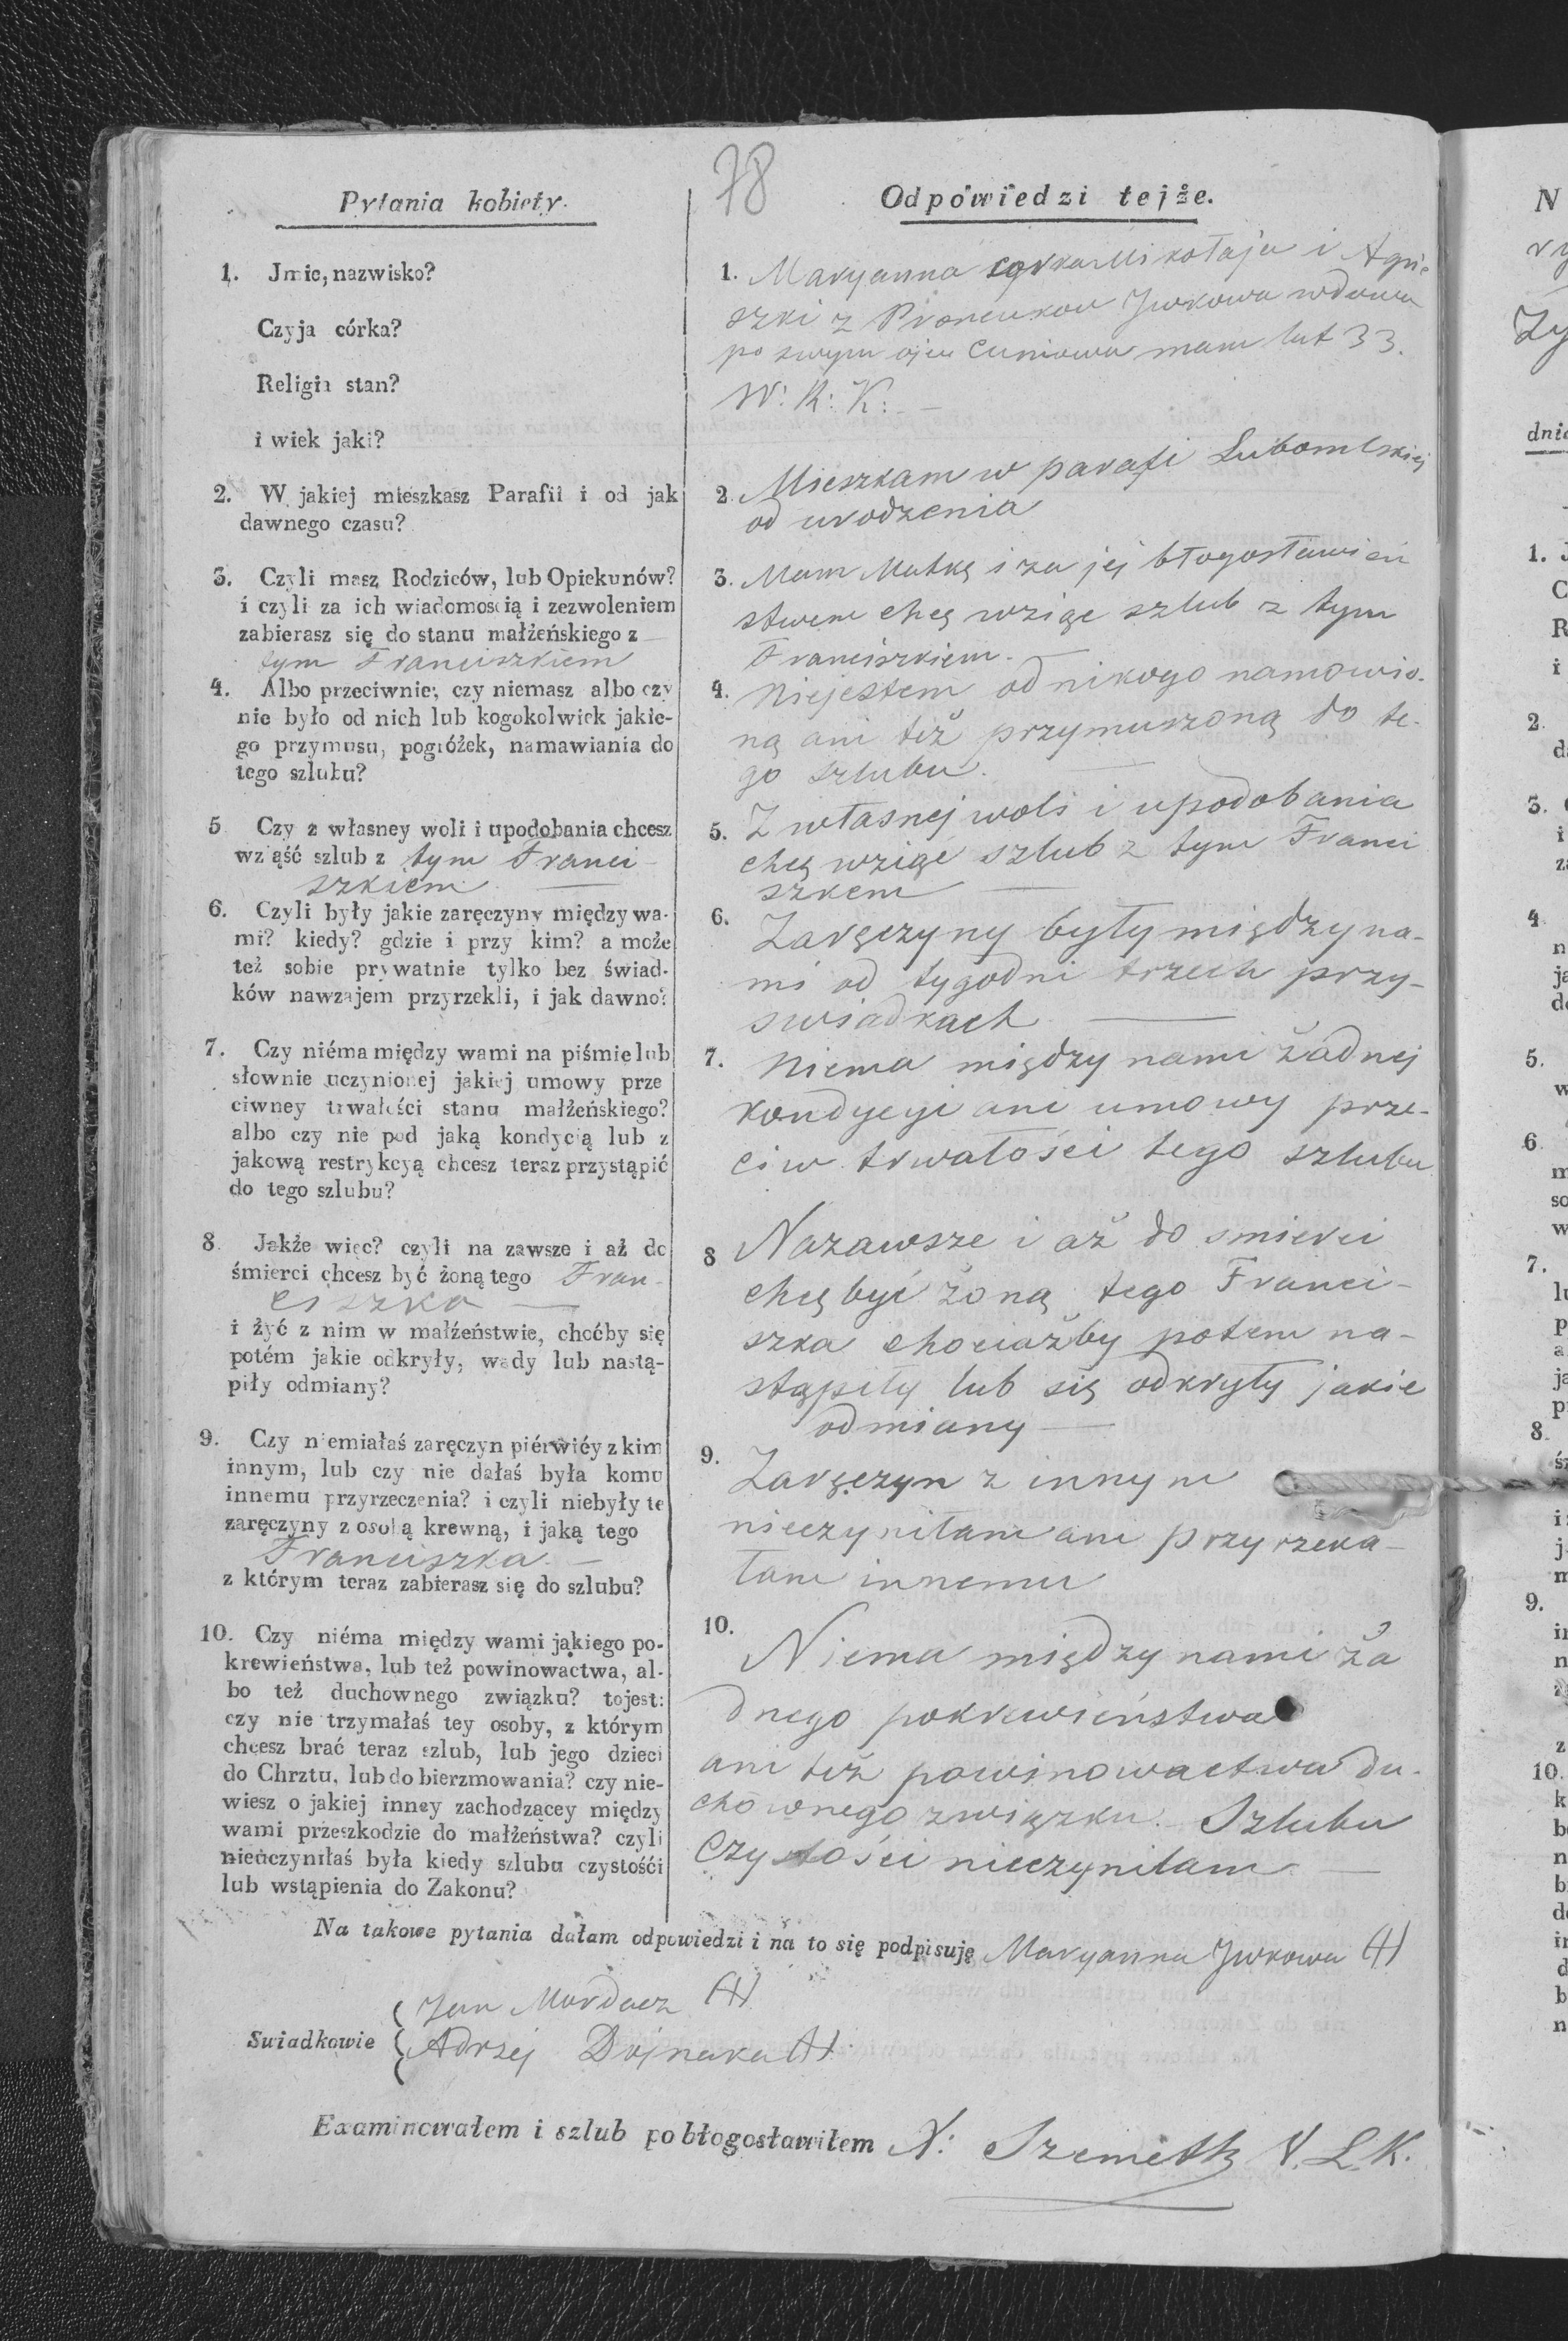 78
Pytania kobiety.
1. Jmie, nazwisko?
Czyja córka?
Religia stan?
i wiek jaki?
2. W jakiej mieszkasz Parafii i od jak
dawnego czasu?
3. Czyli masz Rodziców, lub Opiekunów?
i czyli za ich wiadomością i zezwoleniem
zabierasz się do stanu małżeńskiego z
tym Franciszkiem
4. Albo przeciwnie; czy niemasz albo czy
nie było od nich lub kogokolwiek jakie-
go przymusu, pogróżek, namawiania do
tego szlubu?
5 Czy z własney woli i upodobania chcesz
wziąść szlub z tym Franci-
szkiem
6. Czyli były jakie zaręczyny między wa-
mi? kiedy? gdzie i przy kim? a może
też sobie prywatnie tylko bez świad-
ków nawzajem przyrzekli, i jak dawno?
7. Czy niéma między wami na piśmie lub
słownie uczynionej jakiej umowy prze
ciwney trwałości stanu małżeńskiego?
albo czy nie pod jaką kondycią lub z
jakową restrykcyą chcesz teraz przystąpić
do tego szlubu?
8 Jakże więc? czyli na zawsze i aż do
śmierci chcesz być żoną tego Fran-
ciszka
i żyć z nim w małżeństwie, choćby się
potém jakie odkryły, wady lub nastą-
piły odmiany?
9. Czy niemiałaś zaręczyn piérwiéy z kim
innym, lub czy nie dałaś była komu
innemu przyrzeczenia? i czyli niebyły te
zaręczyny z osobą krewną, i jaką tego
Franciszka
z którym teraz zabierasz się do szlubu?
10. Czy niéma między wami jakiego po-
krewieństwa, lub też powinowactwa, al-
bo też duchownego związku? tojest:
czy nie trzymałaś tey osoby, z którym
chcesz brać teraz szlub, lub jego dzieci
do Chrztu, lub do bierzmowania? czy nie-
wiesz o jakiej inney zachodzącey między
wami przeszkodzie do małżeństwa? czyli
nieuczyniłaś była kiedy szlubu czystości
lub wstąpienia do Zakonu?
Odpowiedzi tejże.
1. Maryanna corka Mikołaja i Agnie
szki z Jurkowa wdowa
po swym ojcu mam lat 33.
W: R: K:
2. Mieszkam w parafi Lubomlskiej
od urodzenia
3. Mam Matkę i za jej błogosławień
stwem chcę wziąc szlub z tym
Franciszkiem.
4. Niejestem od nikogo namowio-
ną ani też przymuszoną do te-
go szlubu.
5. Z własnej woli i upodobania
chcę wziąć szlub z tym Franci
szkem
6. Zaręczyny były między na-
mi od tygodni trzech przy-
swiadkach
7. Niema między nami żadnej
kondycyi ani umowy prze-
ciw trwałości tego szlubu
8 Nazawsze i aż do smierci
chcę być żoną tego Franci-
szka chociażby potem na-
stąpiły lub się odkryły jakie
odmiany
9. Zaręczyn z innym
nieczyniłam ani przyrzeka-
łam innemu
10. Niema między nami ża
dnego pokrewieństwa
ani też powinowactwa du-
chownego związku. Szlubu
Czystości nieczyniłam
Na takowe pytania dałam odpowiedzi i na to się podpisuję Maryanna Jurkowa (+)
Jan Mardacz (+)
Swiadkowie
Adrzej Dojneka (+)
Examinowałem i szlub pobłogosławiłem N: Szemeth V. L. K.
N
dnia
1.
2.
3.
4
5.
6
7.
8.
9.
10.